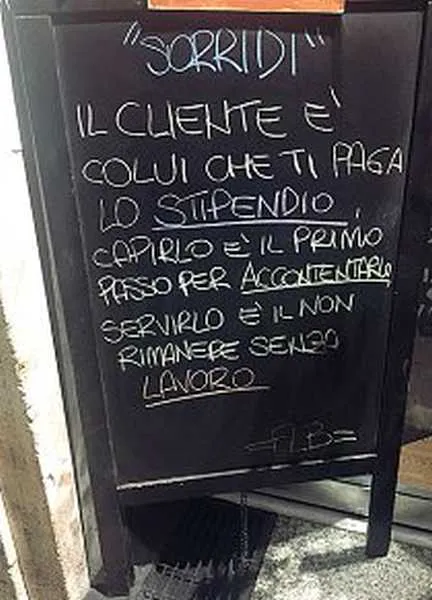 "SORRIDI"
IL CLIENTE E'
COLUI CHE TI PAGA
LO STIPENDIO,
CAPIRLO E' IL PRIMO
PASSO PER ACCONTENTARLO
SERVIRLO E' IL NON
RIMANERE SENZA
LAVORO